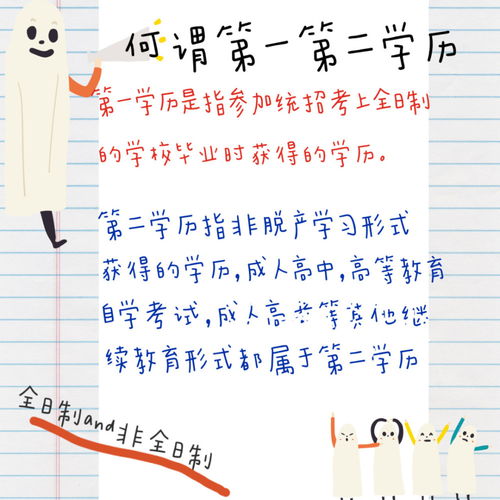 何谓第一第二学历
第一学历是指参加统招考上全日制
的学校毕业时获得的学历。
第二学历指非脱产学习形式
获得的学历,成人高中,高等教育
自学考试,成人高考等其他继
续教育形式都属于第二学历
全日制and非全日制